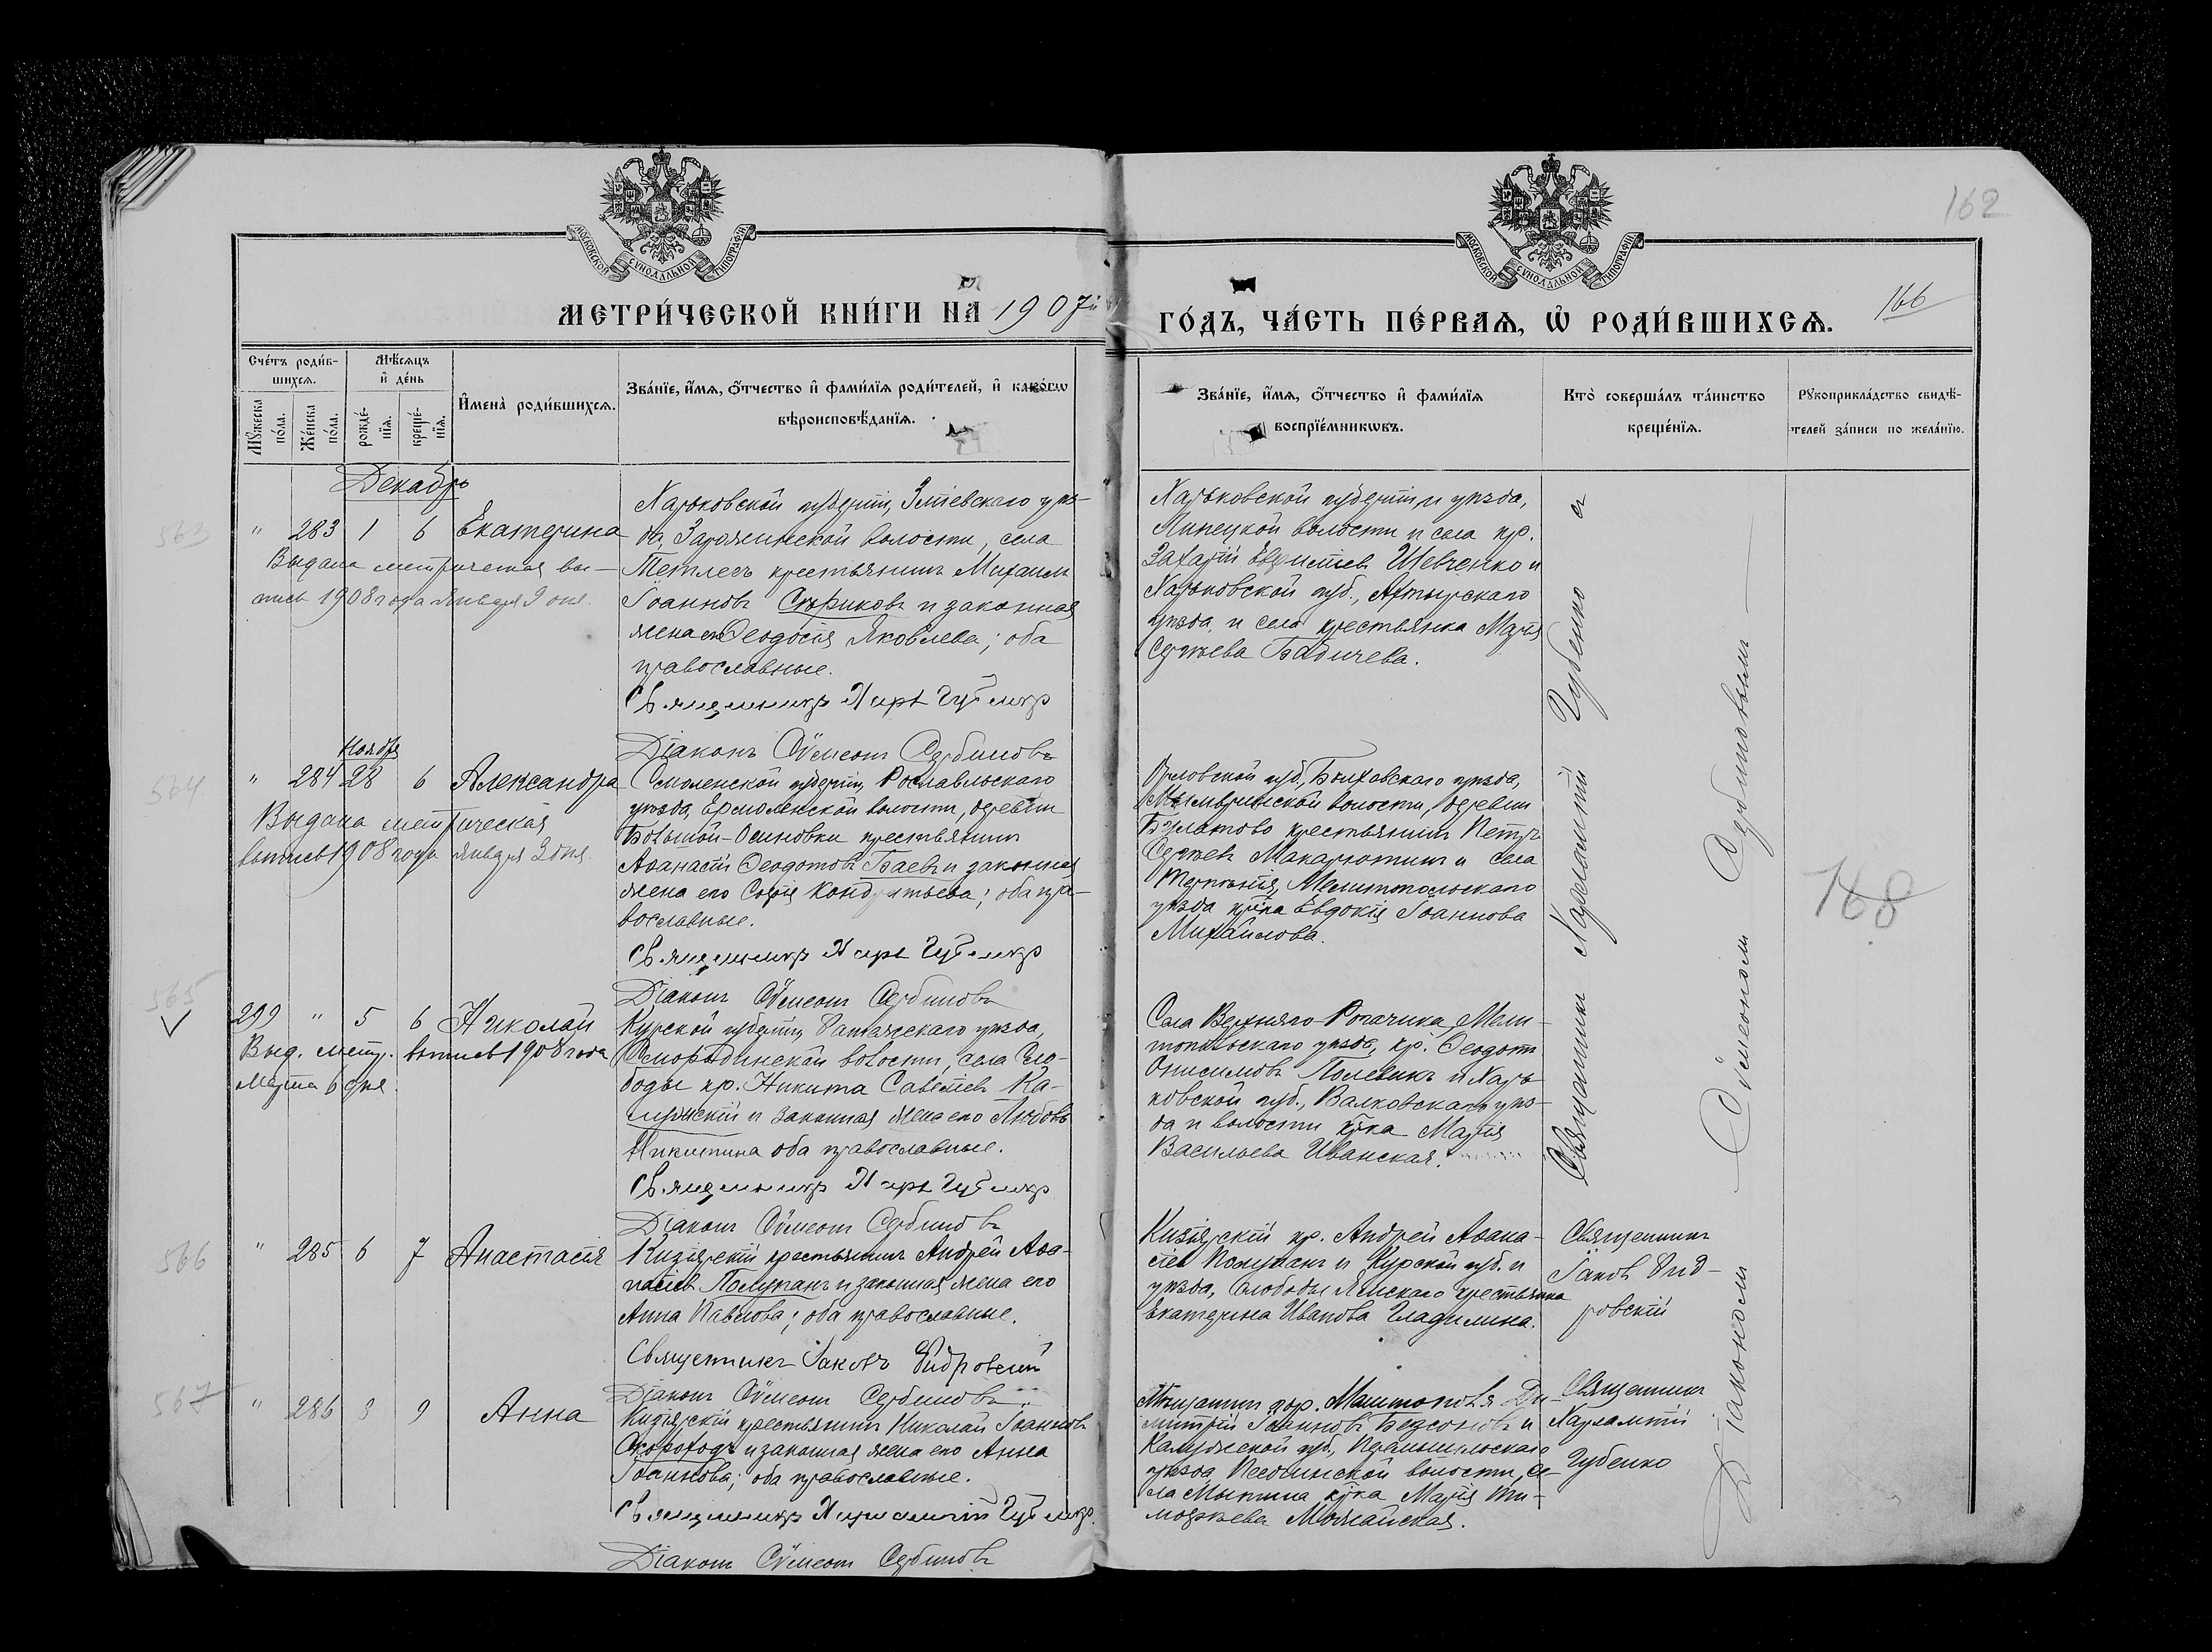 162
МОСКОВСКОЙ СѴНОДАЛЬНОЙ ТИПОГРАФІИ
МОСКОВСКОЙ СѴНОДАЛЬНОЙ ТИПОГРАФІИ
МЕТРИ́ЧЕСКОЙ КНИ́ГИ НА 1907й
ГО́ДЪ, ЧА́СТЬ ПЕ́РВАѦ, Ѽ РОДИ́ВШИХСѦ.
166
Сче́тъ роди́в-
шихсѧ.
Мꙋ́жеска по́ла.
Же́нска по́ла.
Мѣ́сѧцъ
и҆ де́нь
рожде́-нїѧ.
креще́-нїѧ.
И҆мена̀ роди́вшихсѧ.
Зва́нїе, и҆́мѧ, ѻ҆́тчество и҆ фами́лїѧ роди́телей, и҆ како́гѡ
вѣроисповѣ́данїѧ.
Зва́нїе, и҆́мѧ, ѻ҆́тчество и҆ фами́лїѧ
воспрїе́мникѡвъ.
Кто̀ соверша́лъ та́инство
креще́нїѧ.
Рꙋкоприкла́дство свидѣ́-
телей за́писи по жела́нїю.
Декабрь
563
" 283 1 6 Екатерина
Выдана метрическая вы-
пись 1908 года Января 9 дня.
Харьковской губерніи, Зміевскаго уѣз-
да, волости, села
Тетлегъ крестьянинъ Михаилъ
Іоанновъ Сѣриковъ и законная
жена его Ѳеодосія Яковлева; оба
православные.
Священникъ Харл Губенко
Діаконъ Сѵмеонъ Сербиновъ
Харьковской губерніи и уѣзда,
Липецкой волости и села кр.
Захарій Шевченко и
Харьковской губ., Ахтырскаго
уѣзда, и села крестьянка Марія
Сергѣева Бабичева.
Ноября
564
" 284 28 6 Александра
Выдана метрическая
выпись 1908 года Января 3 дня.
Смоленской губерніи, Рославльскаго
уѣзда, Ермолинской волости, деревни
Большой-Осиновки крестьянинъ
Аѳанасій Ѳеодотовъ Баевъ и законная
жена его Софія Кондратьева; оба пра-
вославные.
Священникъ Харл Губенко
Діаконъ Сѵмеонъ Сербиновъ
Орловской губ., Болховскаго уѣзда,
волости, деревни
Булатово крестьянинъ Петръ
Сергѣевъ и села
Терпѣнія, Мелитопольскаго
уѣзда кр-ка Евдокія Іоаннова
Михайлова.
565
299 " 5 6 Николай
Выд. метр. выпись 1908 года
Марта 6 дня.
Курской губерніи, уѣзда,
волости, села Сло-
боды кр. Никита Савельевъ Ка-
и законная жена его Любовь
Никитина оба православные.
Священникъ Харл Губенко
Діаконъ Сѵмеонъ Сербиновъ
Села Верхняго-Рогачика, Мели-
топольскаго уѣзда, кр. Ѳеодотъ
Онисимовъ Полевикъ и Харь-
ковской губ., Валковскаго уѣз-
да и волости кр-ка Марія
Васильева Иванская.
Священникъ Харлампій Губенко съ
Діакономъ Сѵмеономъ Сербиновымъ
168
566
" 285 6 7 Анастасія
Кизіярскій крестьянинъ Андрей Аѳа-
насіевъ Полужанъ и законная жена его
Анна Павлова; оба православные.
Священникъ Іаковъ Видровскій
Діаконъ Сѵмеонъ Сербиновъ
Кизіярскій кр. Андрей Аѳана-
сіевъ и Курской губ. и
уѣзда, слободы Ямскаго крестьянка
Екатерина Иванова Гладилина.
Священникъ
Іаковъ Вид-
ровскій
567
" 286 8 9 Анна
Кизіярскій крестьянинъ Николай Іоанновъ
Скороходъ и законная жена его Анна
Іоаннова; оба православные.
Священникъ Харлампій Губенко.
Діаконъ Сѵмеонъ Сербиновъ
Мѣщанинъ гор. Мелитополя Ди-
митрій Іоанновъ Безсоновъ и
Калужской губ., Перемышльскаго
уѣзда, волости, се-
ла кр-ка Марія Ти-
моѳеева Можайская.
Священникъ
Харлампій
Губенко